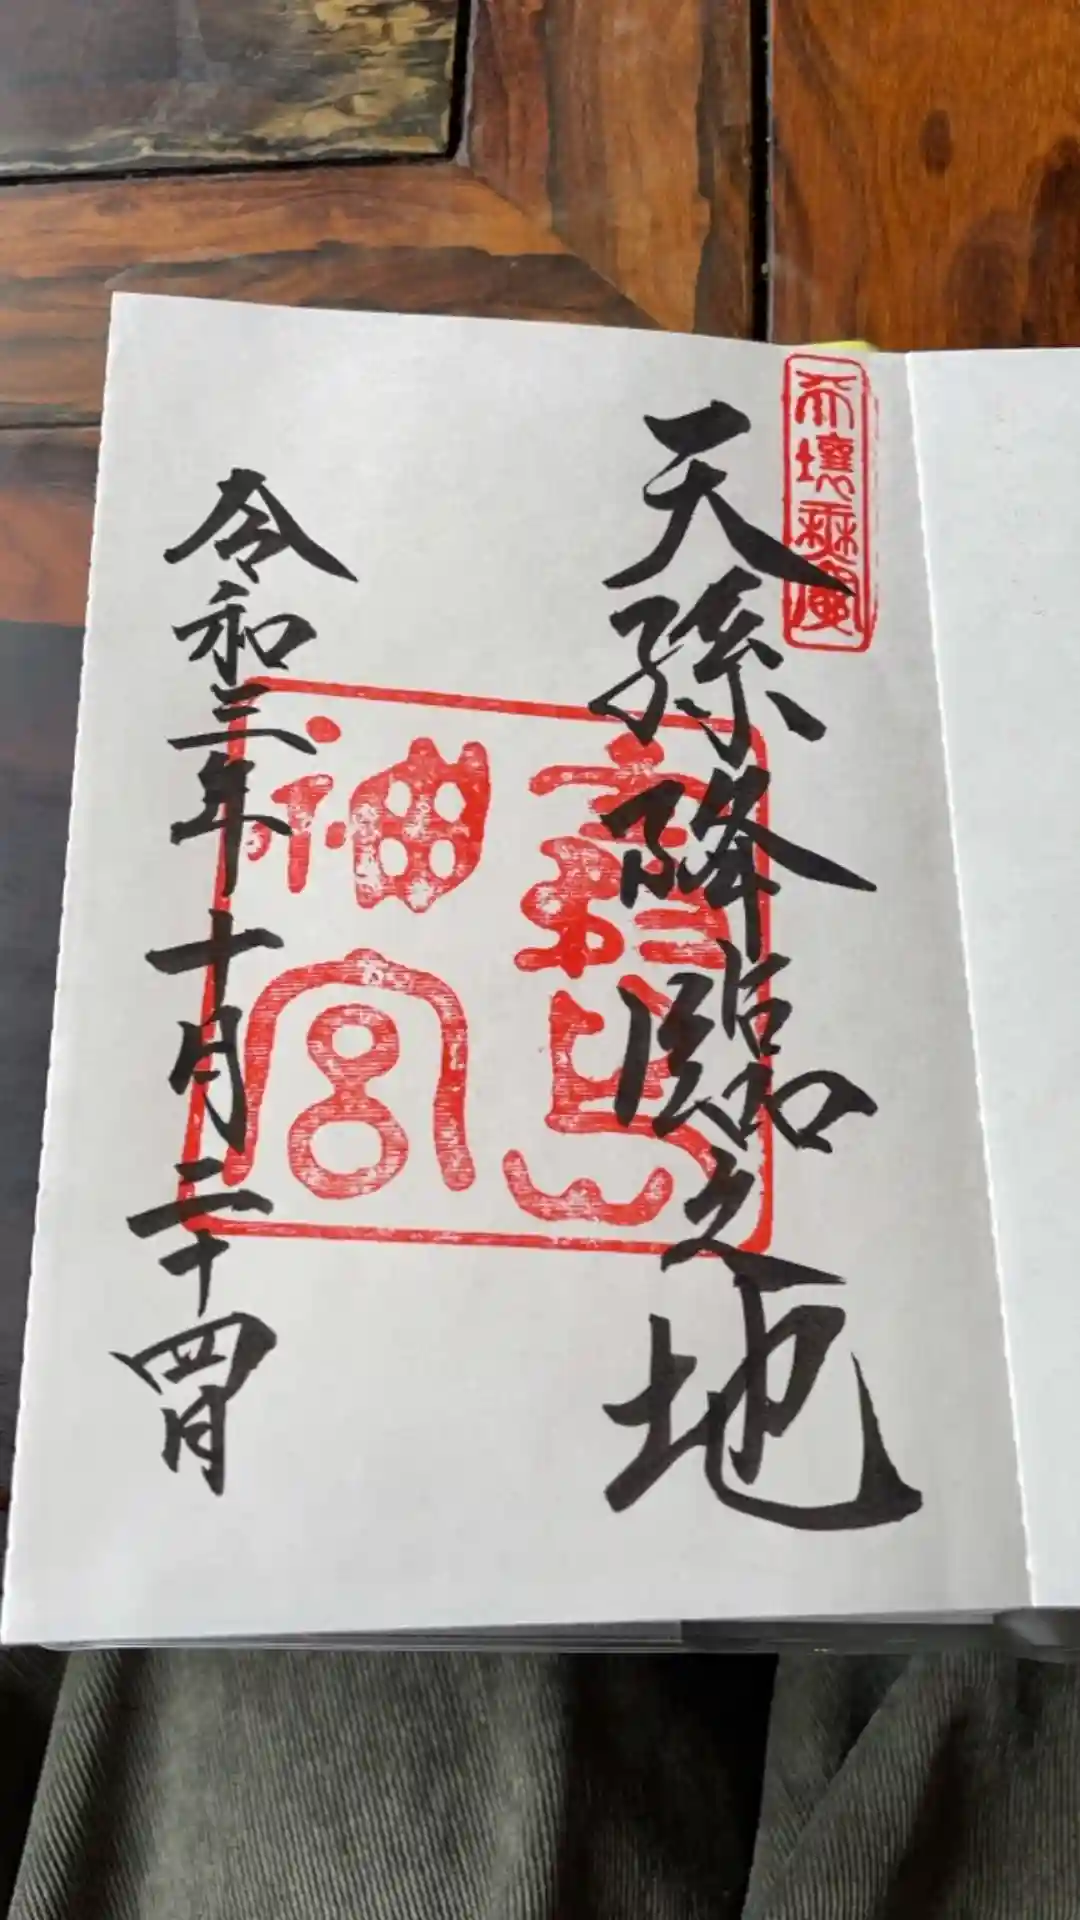 天壌無窮
天孫降臨之地
霧島神宮
令和三年十月二十四日